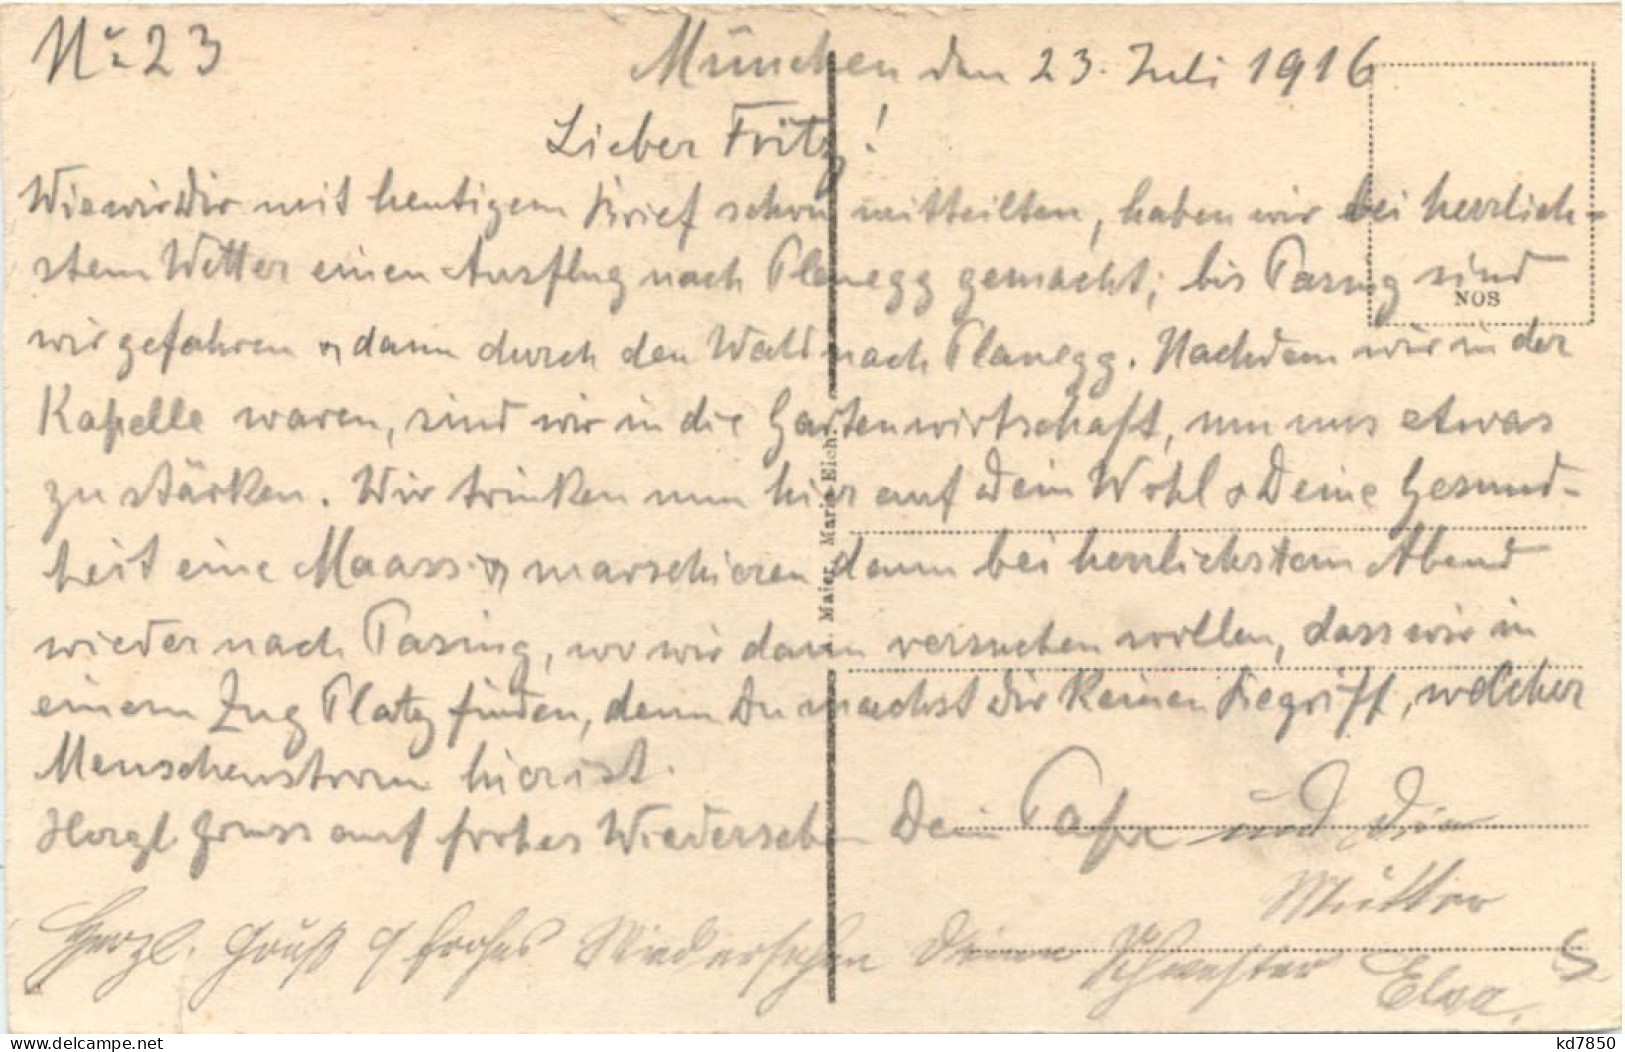 No 23
München den 23. Juli 1916
Lieber Fritz!
Wie wir Dir mit heutigem Brief schon mitteilten, haben wir bei herrlich-
stem Wetter einen Ausflug nach Planegg gemacht; bis Pasing sind
NOS
wir gefahren & dann durch den Wald nach Planegg. Nachdem wir in der
Kapelle waren, sind wir in die Gartenwirtschaft, um uns etwas
zu stärken. Wir trinken nun hier auf Dein Wohl & Deine Gesund-
heit eine Maass & marschieren dann bei herrlichstem Abend
wieder nach Pasing, wo wir dann versuchen wollen, dass wir in
einem Zug Platz finden, denn Du machst Dir keinen Begriff, welcher
Menschenstrom hier ist.
Herzl. Gruss auf frohes Wiedersehen Dein Papa und Die
Mutter
Herzl. Gruß & frohes Wiedersehen Deine Schwester Elsa.
S
Maier, Maria-Eich.
kd7850